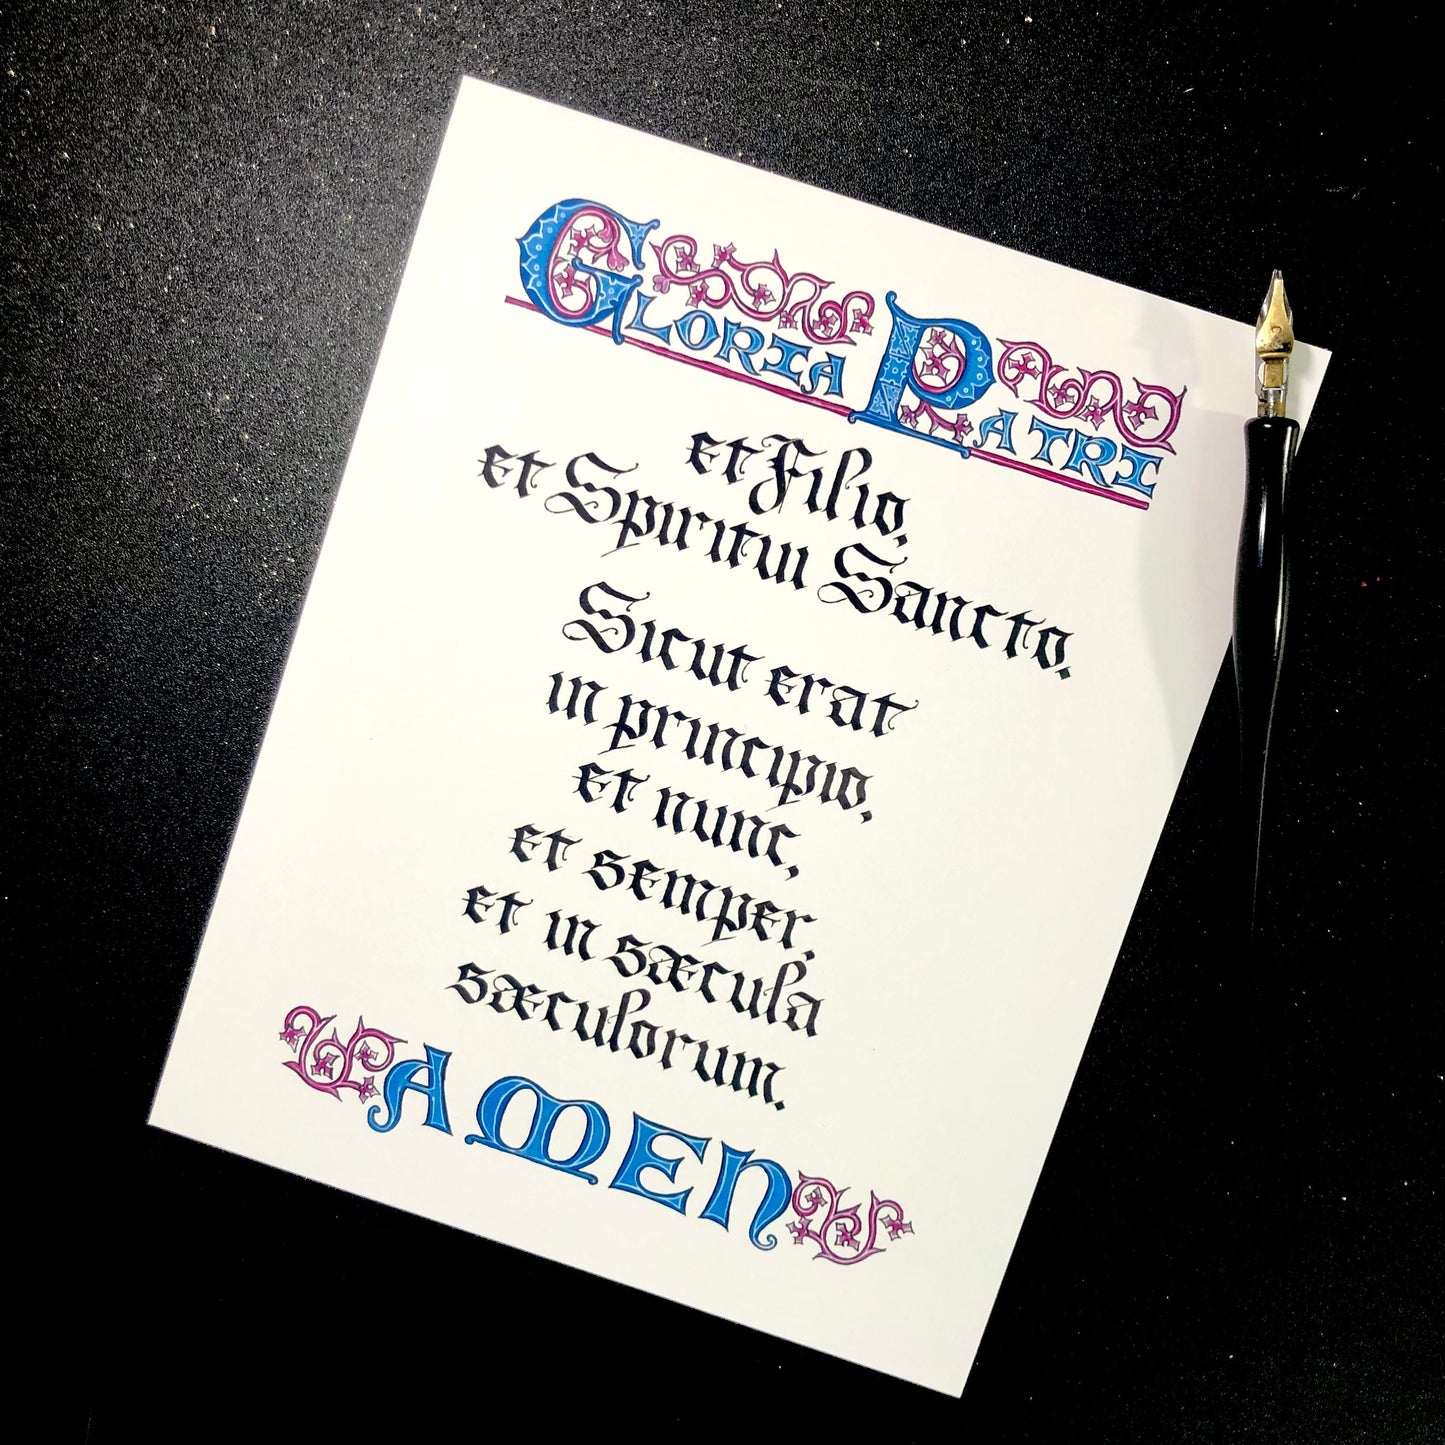 GLORIA PATRI
et Filio,
et Spiritui Sancto.
Sicut erat
in principio,
et nunc,
et semper,
et in sæcula
sæculorum.
AMEN